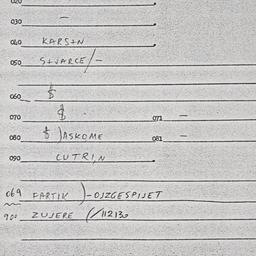 020
030 –
040 KARS+N
050 S+VARCE/–
060 $
070 $ 071 –
080 $ )ASKOME 081 –
090 CUTRIN
069 FARTIK )–OJZGESPIJET
900 ZUJERE (/112130